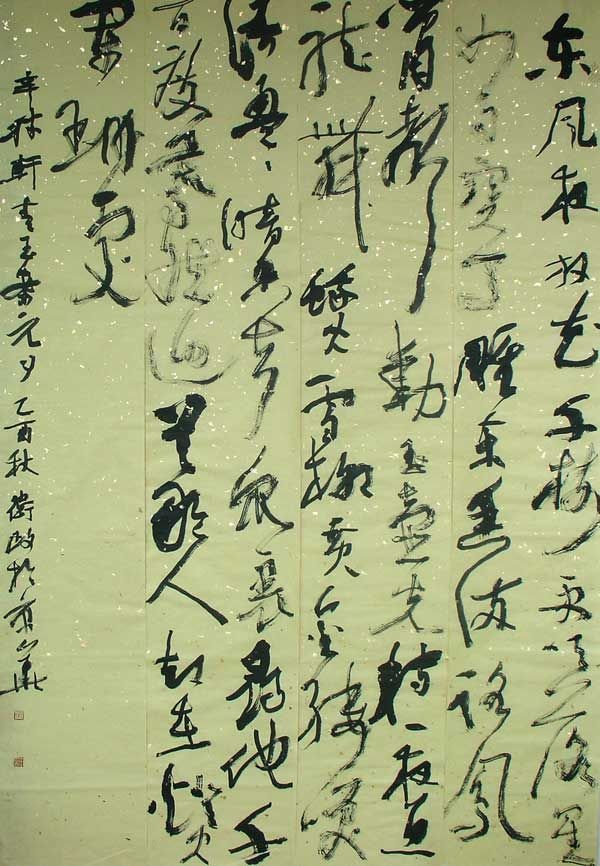 东风夜放花千树更吹落星
如雨宝马雕车香满路凤
箫声动玉壶光转一夜鱼
龙舞蛾儿雪柳黄金缕笑
语盈〻暗香去众里寻他千
百度蓦然回首那人却在灯火
阑珊处
辛稼轩青玉案元夕乙酉秋衛政於京華